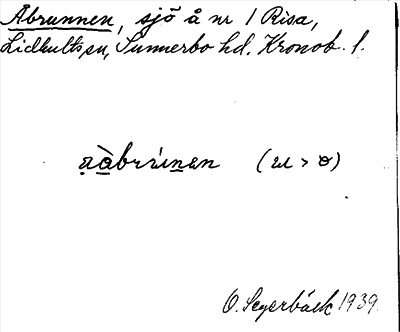 Åbrunnen, sjö å nr 1 Risa,
Lidhults sn, Sunnerbo hd. Kronob. l.
O. Segerbäck 1939.